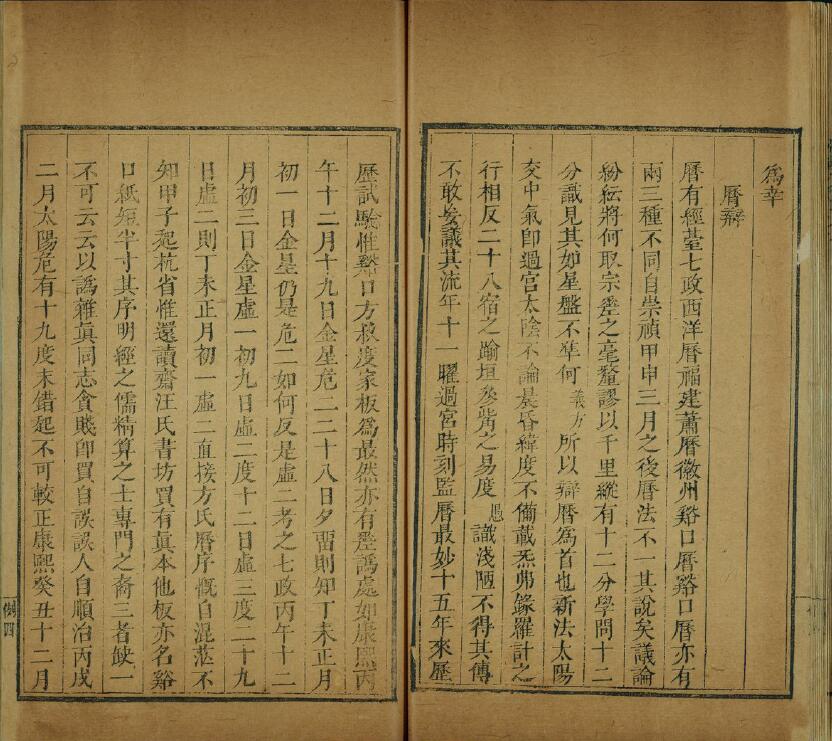 為幸
曆辯
曆有經臺七政西洋曆福建蕭曆徽州谿口曆谿口曆亦有
兩三種不同自崇禎甲申三月之後曆法不一其說矣議論
紛紜將何取宗差之毫釐謬以千里縱有十二分學問十二
分識見其如星盤不準何義方所以辯曆為首也新法太陽
交中氣卽過宮太陰不論晨昏緯度不備載炁孛錄羅計之
行相反二十八宿之踰垣參觜之易度愚識淺陋不得其傳
不敢妄議其流年十一曜過宮時刻監曆最妙十五年來歷
歷試驗惟谿口方救度家板為最然亦有差譌處如康熙丙
午十二月十九日金星危二二十八日夕畱則知丁未正月
初一日金星仍是危二如何反是虛二考之七政丙午十二
月初三日金星虛一初九日虛二度十二日虛三度二十九
日虛二則丁未正月初一虛二直接方氏曆序慨自混茫不
知甲子起杭省惟還讀齋汪氏書坊買有眞本他板亦名谿
口紙短半寸其序明經之儒精算之士專門之裔三者缺一
不可云云以譌雜眞同志貪賤卽買自誤誤人自順治丙戌
二月太陽危有十九度末錯起不可較正康熙癸丑十二月